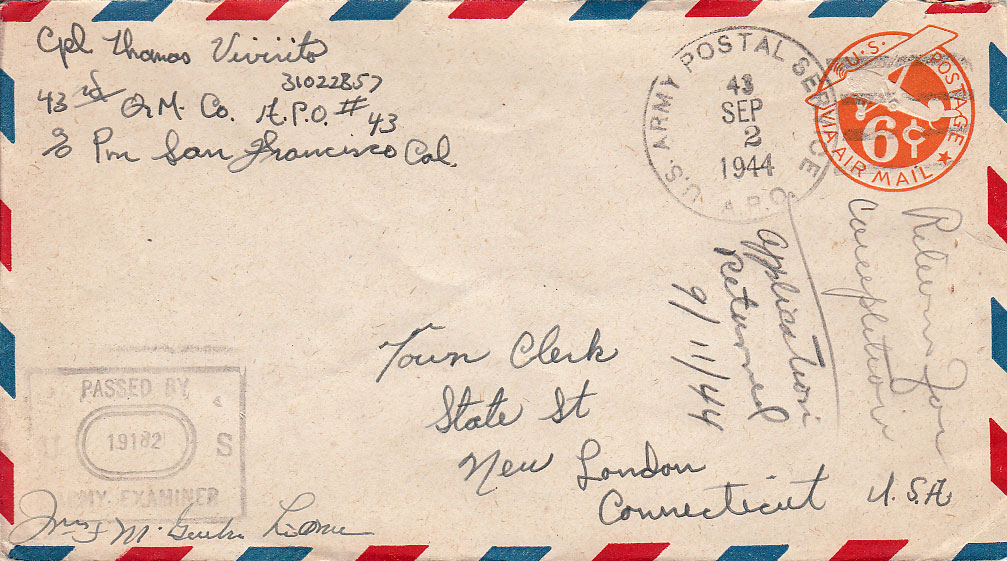 Cpl. Thomas Vivirito
31022857
43rd Q.M. Co. A.P.O. # 43
c/o Pm San Francisco Cal.
U.S. ARMY POSTAL SERVICE
43
SEP
2
1944
A.P.O.
U.S. POSTAGE
6¢
VIA AIR MAIL
Return for
Application
Returned
9/11/44
Town Clerk
State St
New London
Connecticut U.S.A.
PASSED BY
19182
S
ARMY EXAMINER